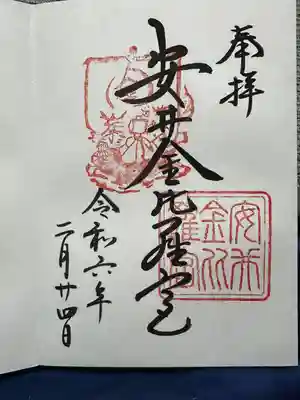 奉拝
安井金比羅宮
令和六年
二月廿四日
安井
金比
羅宮